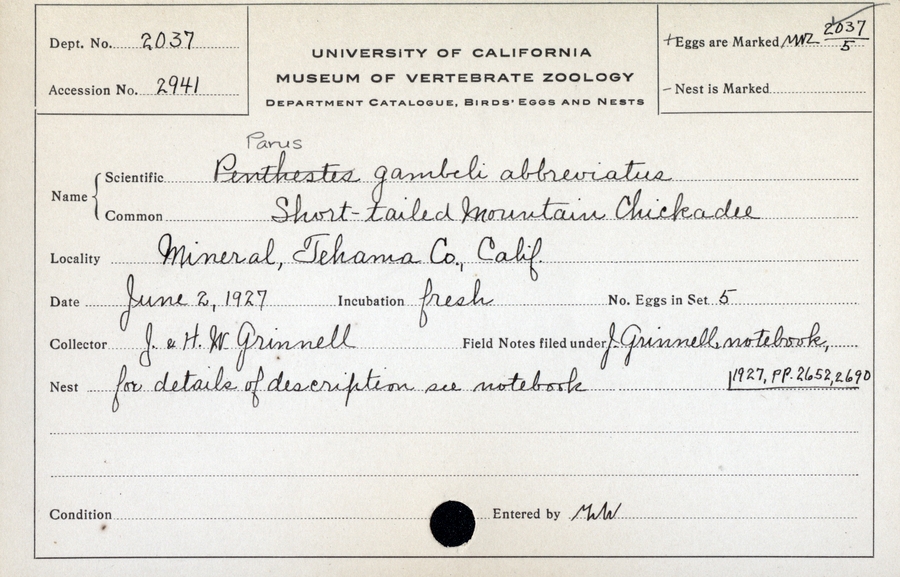 Dept. No. 2037
Accession No. 2941
UNIVERSITY OF CALIFORNIA
MUSEUM OF VERTEBRATE ZOOLOGY
DEPARTMENT CATALOGUE, BIRDS' EGGS AND NESTS
+Eggs are Marked MVZ 2037/5
-Nest is Marked
Parus
Name Scientific Penthestes gambeli abbreviatus
Common Short-tailed Mountain Chickadee
Locality Mineral, Tehama Co., Calif.
Date June 2, 1927 Incubation fresh No. Eggs in Set 5
Collector J. & H. W. Grinnell Field Notes filed under J. Grinnell, notebook,
Nest for details of description see notebook 1927, PP. 2652, 2690
Condition Entered by